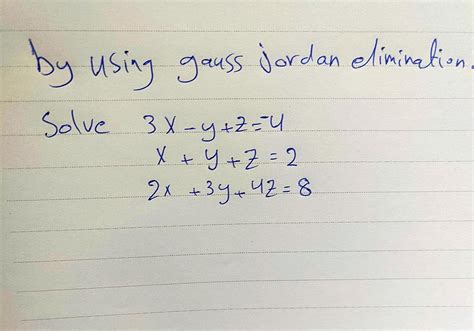 by using gauss jordan elimination.
Solve 3x-y+z=-4
x+y+z=2
2x+3y+4z=8